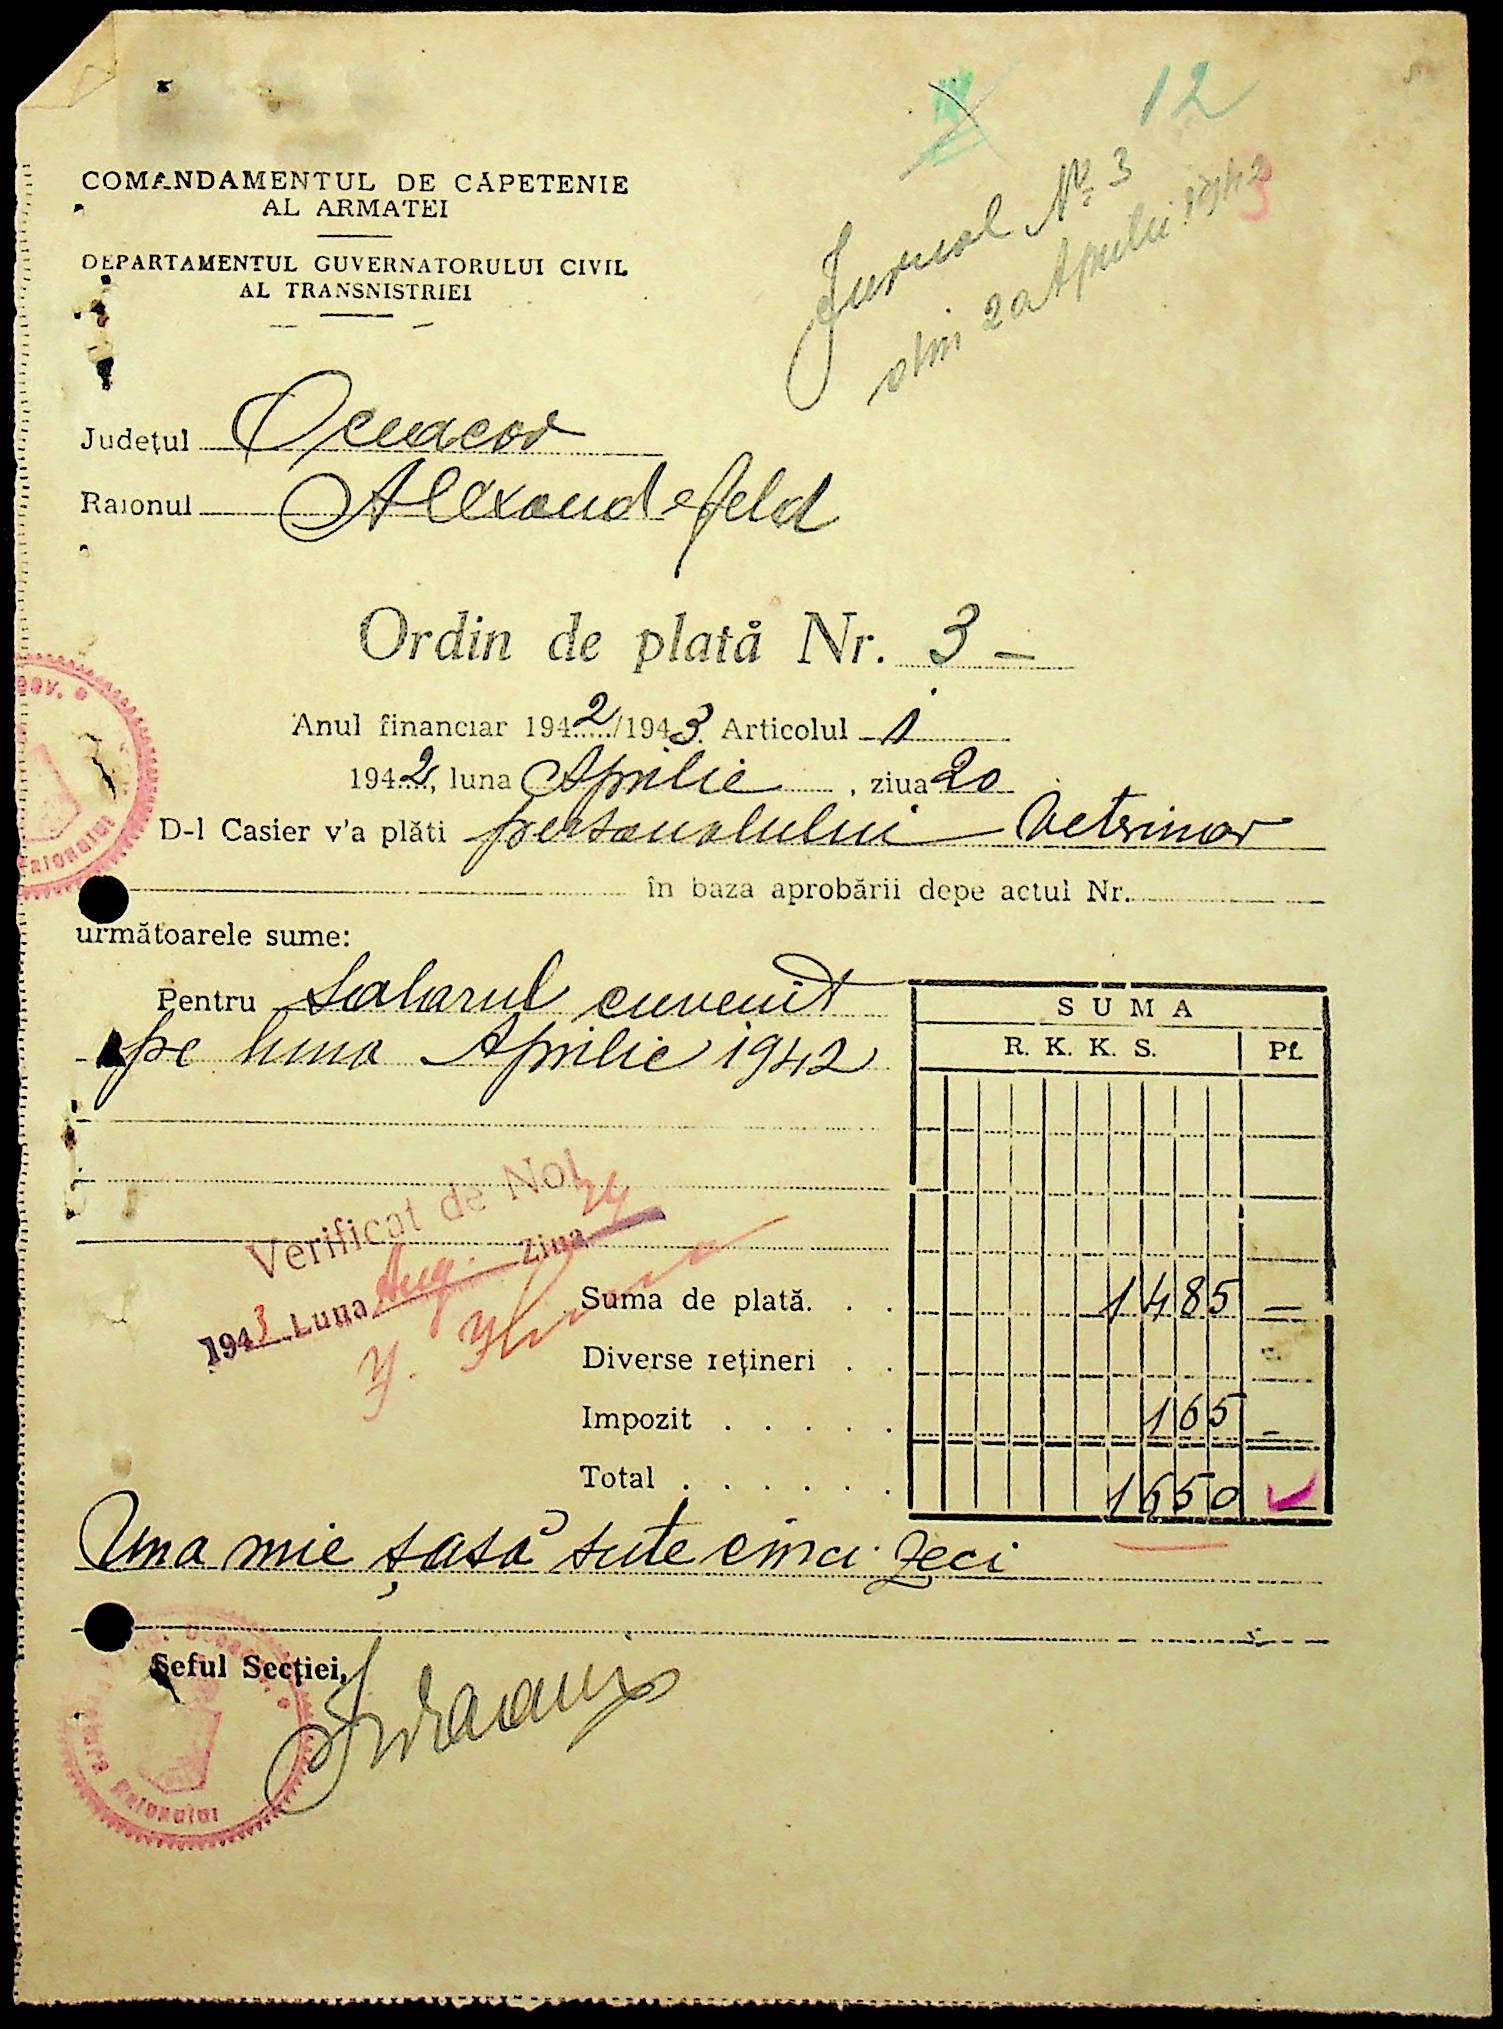 12
Jurnal № 3
din 20 Aprilie 1942
3
COMANDAMENTUL DE CĂPETENIE
AL ARMATEI
DEPARTAMENTUL GUVERNATORULUI CIVIL
AL TRANSNISTRIEI
Județul Oceacov
Raionul Alexandefeld
Ordin de plată Nr. 3 —
Anul financiar 1942/1943 Articolul 1
1942, luna Aprilie, ziua 20
D-l Casier v'a plăti personalului veterinar
în baza aprobării depe actul Nr.
următoarele sume:
Pentru salarul cuvenit
pe luna Aprilie 1942
SUMA
R. K. K. S. Pf.
Verificat de Noi
1943 Luna Aug. Ziua 24
Suma de plată. . . 1485 —
Diverse rețineri . .
Impozit . . . . . 165 —
Total . . . . . . 1650 —
Una mie șasă sute cinci zeci
Șeful Secției,
Raionului
Pretura Raionului